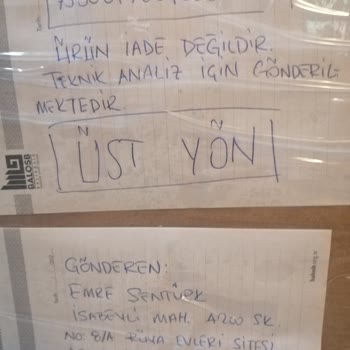 ÜRÜN İADE DEĞİLDİR.
TEKNİK ANALİZ İÇİN GÖNDERİL-
MEKTEDİR.
ÜST YÖN
BALOSB
GÖNDEREN:
EMRE ŞENTÜRK
İSABEYLİ MAH. 4200 SK.
NO: 8/A RÜYA EVLERİ SİTESİ